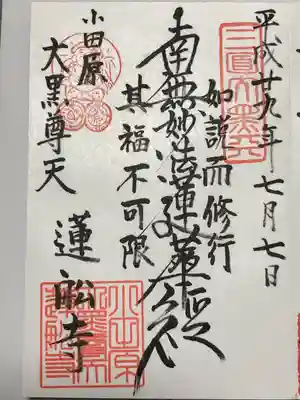 平成廿九年七月七日
三面大黒天
如説而修行
南無妙法蓮華経
其福不可限
小田原
大黒尊天
蓮船寺